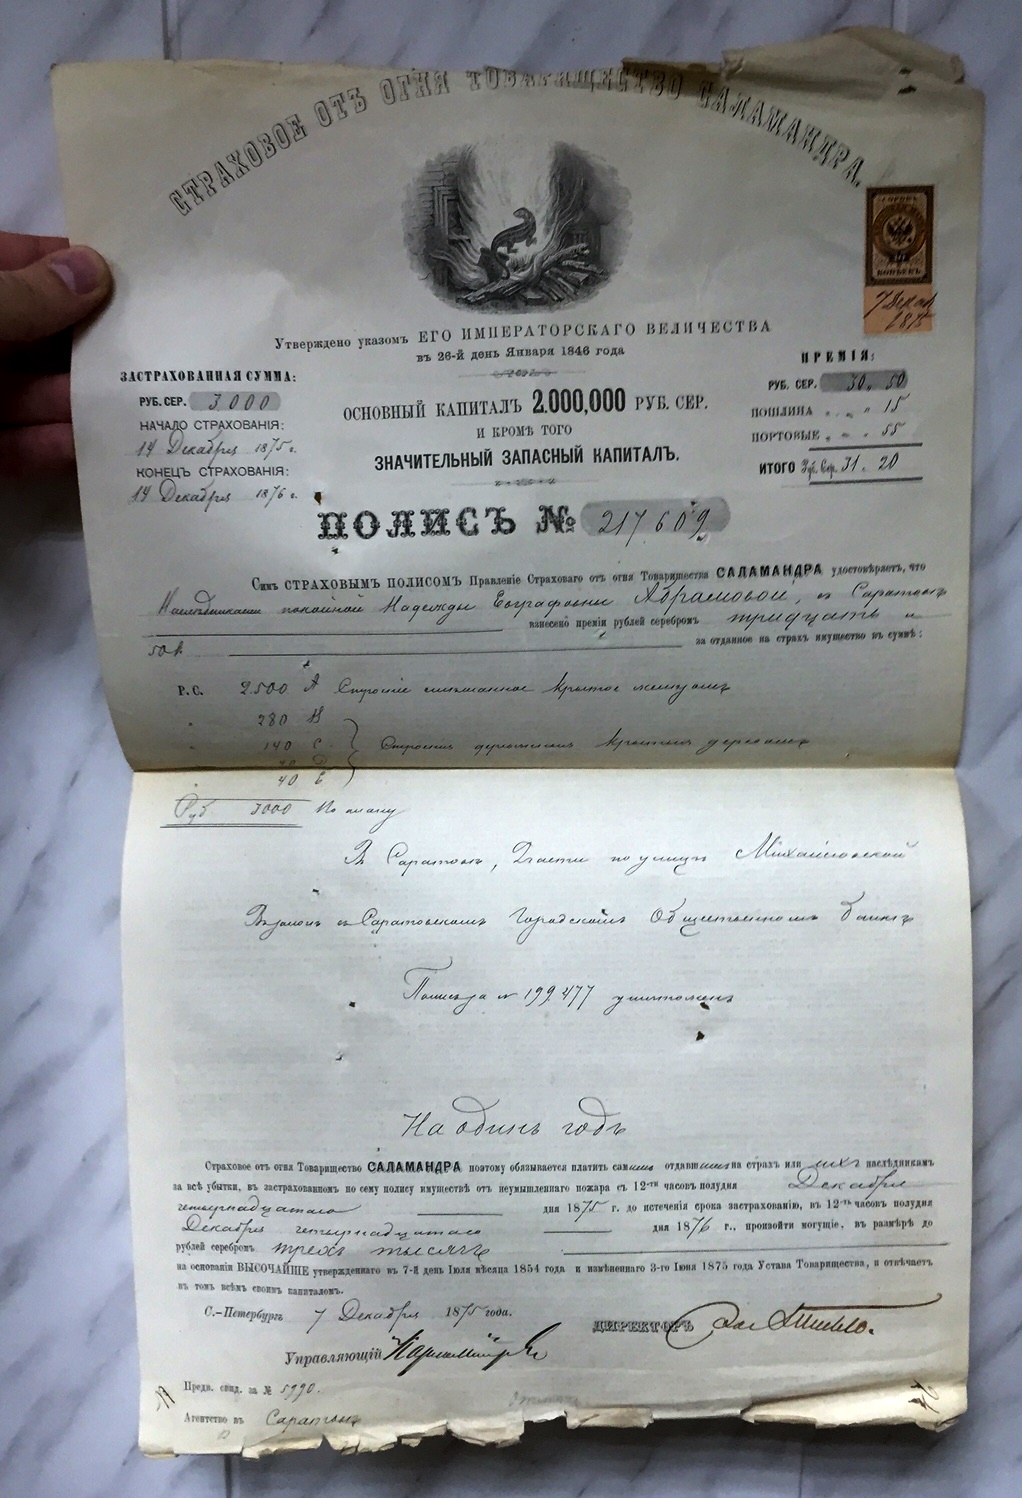 СТРАХОВОЕ ОТЪ ОГНЯ ТОВАРИЩЕСТВО САЛАМАНДРА.
СОРОКЪ
40
КОПѢЕКЪ
7 Декаб
1875
Утверждено указомъ ЕГО ИМПЕРАТОРСКАГО ВЕЛИЧЕСТВА
въ 26-й день Января 1846 года
ЗАСТРАХОВАННАЯ СУММА:
РУБ. СЕР. 3000
НАЧАЛО СТРАХОВАНІЯ:
14 Декабря 1875 г.
КОНЕЦЪ СТРАХОВАНІЯ:
14 Декабря 1876 г.
ОСНОВНЫЙ КАПИТАЛЪ 2.000,000 РУБ. СЕР.
И КРОМѢ ТОГО
ЗНАЧИТЕЛЬНЫЙ ЗАПАСНЫЙ КАПИТАЛЪ.
ПРЕМІЯ:
РУБ. СЕР. 30. 50
ПОШЛИНА „ „ „ 15
ПОРТОВЫЕ „ „ „ 55
ИТОГО Руб. Сер. 31. 20
ПОЛИСЪ № 217609
Симъ СТРАХОВЫМЪ ПОЛИСОМЪ Правленіе Страховаго отъ огня Товарищества САЛАМАНДРА удостовѣряетъ, что
Наслѣдниками покойной Надежды Евграфовны Абрамовой, въ Саратовѣ
взнесено преміи рублей серебромъ тридцать и
50 к. за отданное на страхъ имущество въ суммѣ:
Р. С. 2500 A Строеніе смѣшанное крытое желѣзомъ
280 B
140 C. Строенія деревянныя крытыя деревомъ
40 D
40 E
Руб. 3000 По плану
Въ Саратовѣ, 2 части по улицѣ Михайловской
Въ залогѣ въ Саратовскомъ Городскомъ Общественномъ банкѣ
Полисъ за № 199477 уничтоженъ
На одинъ годъ
Страховое отъ огня Товарищество САЛАМАНДРА поэтому обязывается платить самимъ отдавшимъ на страхъ или ихъ наслѣдникамъ
за всѣ убытки, въ застрахованномъ по сему полису имуществѣ отъ неумышленнаго пожара съ 12-ти часовъ полудня Декабря
четырнадцатаго дня 1875 г. до истеченія срока застрахованію, въ 12-ть часовъ полудня
Декабря четырнадцатаго дня 1876 г., произойти могущіе, въ размѣрѣ до
рублей серебромъ трехъ тысячъ
на основаніи ВЫСОЧАЙШЕ утвержденнаго въ 7-й день Іюля мѣсяца 1854 года и измѣненнаго 3-го Іюня 1875 года Устава Товарищества, и отвѣчаетъ
въ томъ всѣмъ своимъ капиталомъ.
С.-Петербургъ 7 Декабря 1875 года.
ДИРЕКТОРЪ
Управляющій
Предв. свид. за № 5990.
Агентство въ Саратовѣ